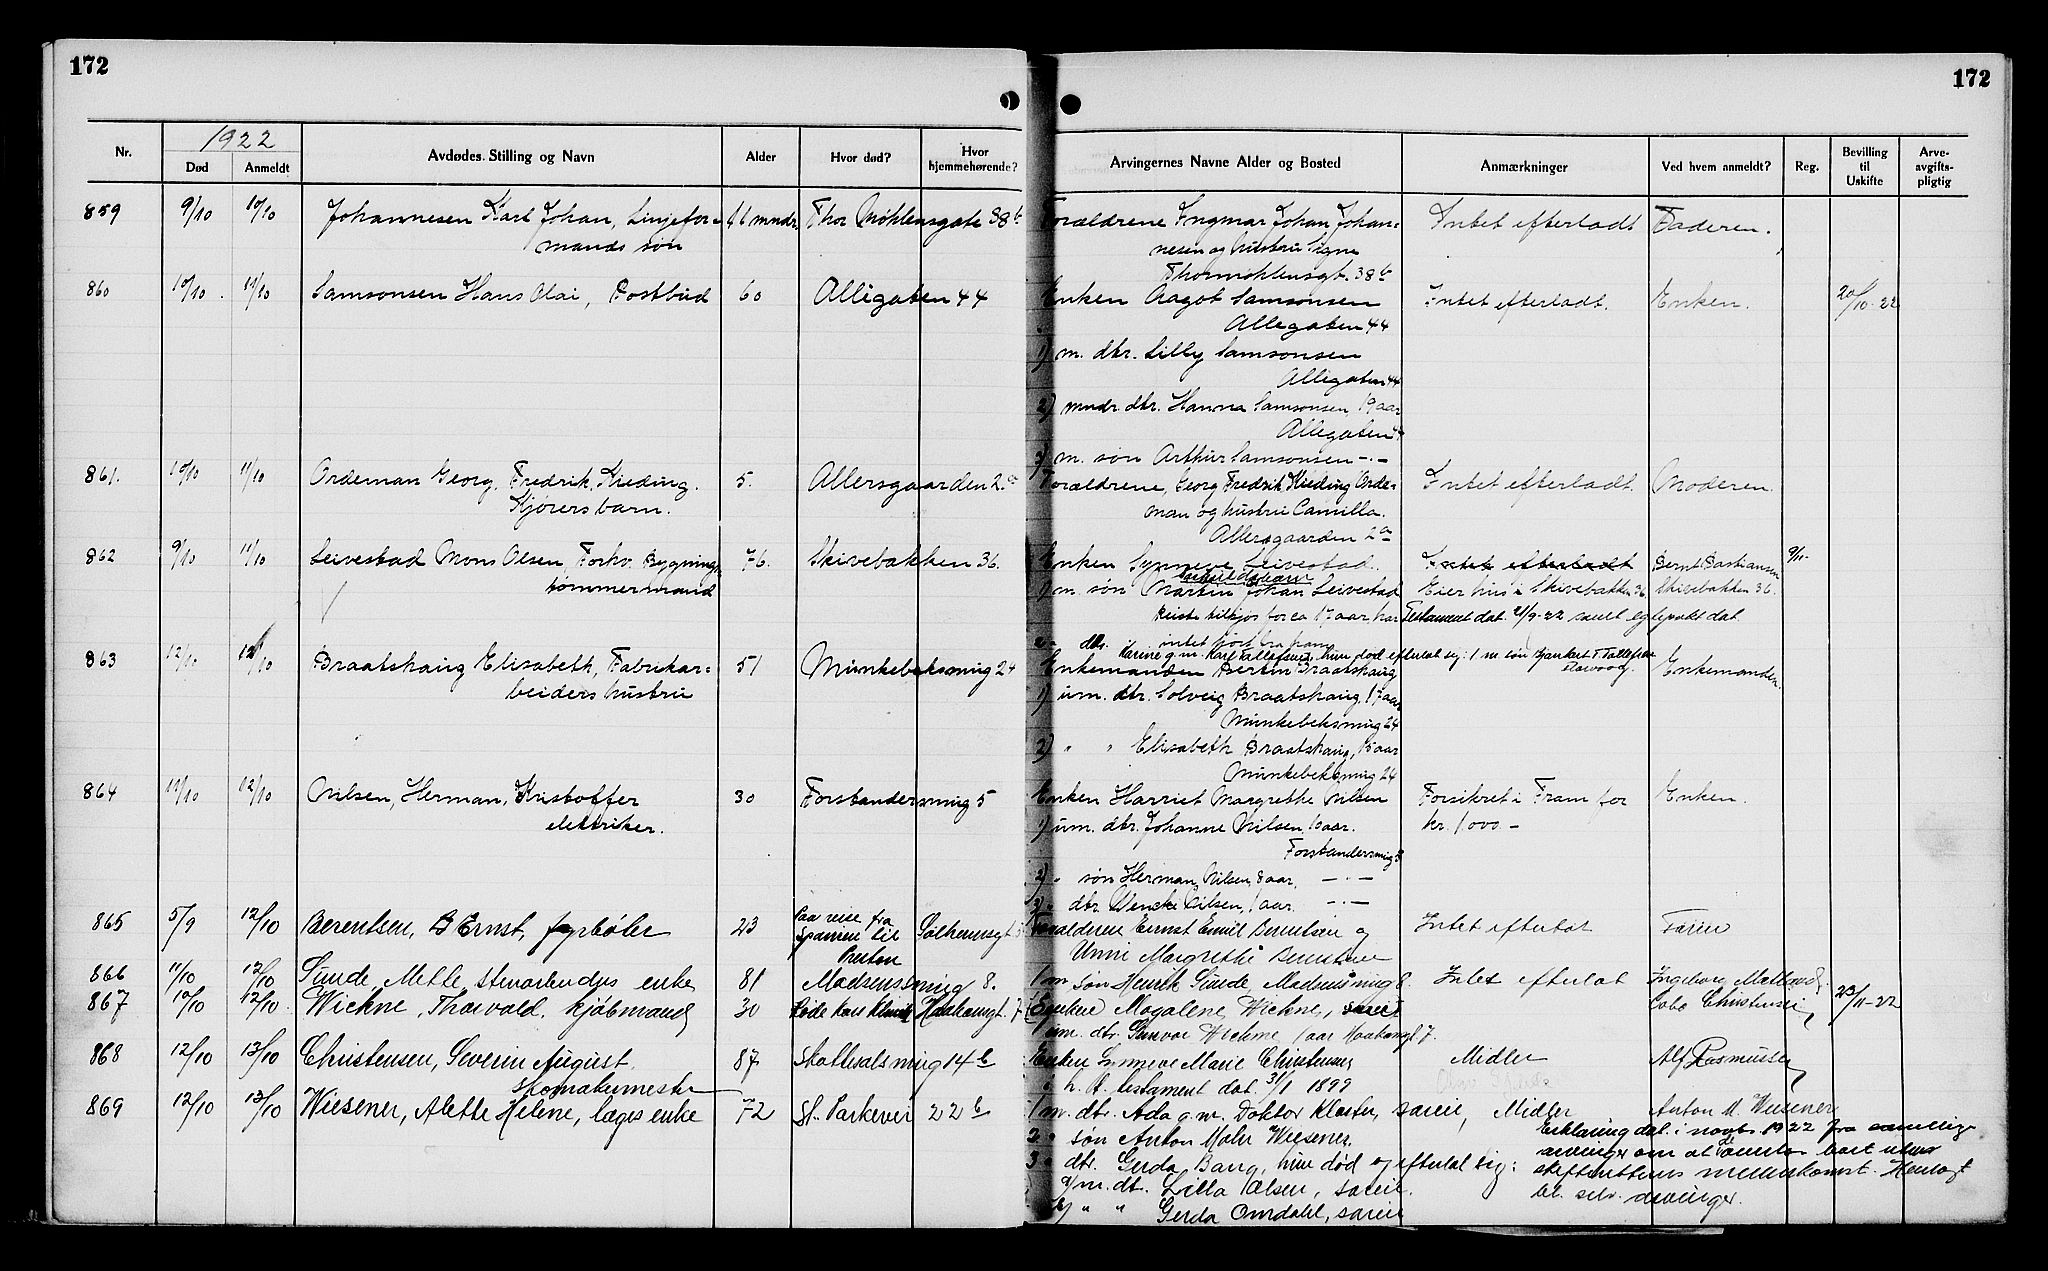 172
172
1922
Nr. Død Anmeldt Avdødes Stilling og Navn Alder Hvor død? Hvor hjemmehørende? Arvingernes Navne Alder og Bosted Anmærkninger Ved hvem anmeldt? Reg. Bevilling til Uskifte Arve-avgifts-pligtig
859 9/10 10/10 Johannesen Karl Johan, Linjefor- mndr. Thor Møhlensgate 38b Forældrene Ingmar Johan Johan- Intet efterladt Faderen.
mands søn nesen og hustru Signe
Thormøhlensgt. 38b
860 10/10 11/10 Samsonsen Hans Olai, Postbud 60 Allégaten 44 Enken Aagot Samsonsen Intet efterladt. Enken. 20/10-22
Allegaten 44
1) m. dtr. Lilly Samsonsen
Allégaten 44
2) mndr. dtr. Hanna Samsonsen, 19 aar
Allegaten 44
3) m. søn Arthur Samsonsen -"-
861. 10/10 11/10 Ordeman Georg Fredrik Kieding. 5. Allersgaarden 2a Forældrene, Georg Fredrik Kieding Orde- Intet efterladt. Moderen.
Kjørersbarn. man og hustru Camilla.
Allersgaarden 2a
862 9/10 11/10 Leivestad Mons Olsen, Forhv. Bygnings- 76. Skivebakken 36. Enken Synneve Leivestad. Intet efterladt Bernt Bastiansen 9/11-
tømmermand 1) m. søn Martin Johan Leivestad Eier hus i Skivebakken 36 Skivebakken 36.
Reiste tilsjøs for ca 17 aar, har Testament dat. 21/9-22 samt egtepakt dat.
intet hørt fra ham
2) dtr. Karine g.m. Karl Tallefsen, hun død efterlat sig: 1 m. søn
863 12/10 12/10 Braatshaug Elisabeth, Fabrikar- 51 Munkebeksmug 24 Enkemanden Bertin Braatshaug Enkemanden.
beiders hustru 1) um. dtr. Solveig Braatshaug, 17 aar
Munkebeksmug 24
2) " " Elisabeth Braatshaug, 15 aar
Munkebeksmug 24
864 11/10 12/10 Nilsen, Herman, Kristoffer 30 Forstandersmug 5 Enken Harriet Margrethe Nilsen Forsikret i Fram for Enken.
elektriker. 1) um. dtr. Johanne Nilsen, 10 aar. kr. 1000.-
Forstandersmug 5
2) " søn Herman Nilsen, 8 aar. -"-
3) " dtr. Wencke Nilsen, 1 aar. -"-
865 5/9 12/10 Berentsen, B Ernst, fyrbøter 23 Paa reise fra Spanien til Preston Solheimsgt. Forældrene Ernst Emil Berentsen og Intet efterlat Faren
Unni Margrethe Berentsen
866 11/10 12/10 Sunde, Mette, stenarbeiders enke 81 Madsenssmug 8. 1 m søn Henrik Sunde, Madsensmug 8. Intet efterlat Ingeborg
867 10/10 12/10. Wickne, Thorvald, kjøbmand 30 Røde Kors Klinik Haakonsgt. 7 Enken Magdalene Wickne, sarei Christensen 23/11-22
1 um. dtr. Gunvor Wickne 1 aar Haakonsgt 7.
868 12/10 13/10 Christensen, Severin August 87 14b Enken Synneve Marie Christensen Midler Alf Rasmussen
skomakermester h. h. testament dat. 31/1 1899
869 12/10 13/10 Wiesener, Alette Helene, læges enke 72 St. Parkevei 22b 1 m. dtr. Ada g.m. Doktor Kloster, sareie, Midler Anton M. Wiesener
2 " søn Anton Mohr Wiesener. Erklæring dat. i novbr 1922 fra samtlige
3 " dtr. Gerda Bang, hun død og efterlat sig: arvinger om at boet uten
a/ m. dt. Lilla Olsen, sareie. skifterettens mellemkomst. Henlagt
b/ " " Gerda Omdahl, sareie bl. selv. arvinger.